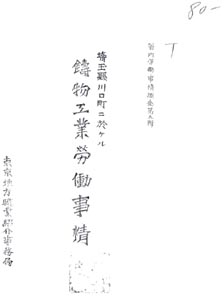 80-
T
管内労働事情調査第五輯
埼玉縣川口町ニ於ケル
鑄物工業勞働事情
東京地方職業紹介事務局